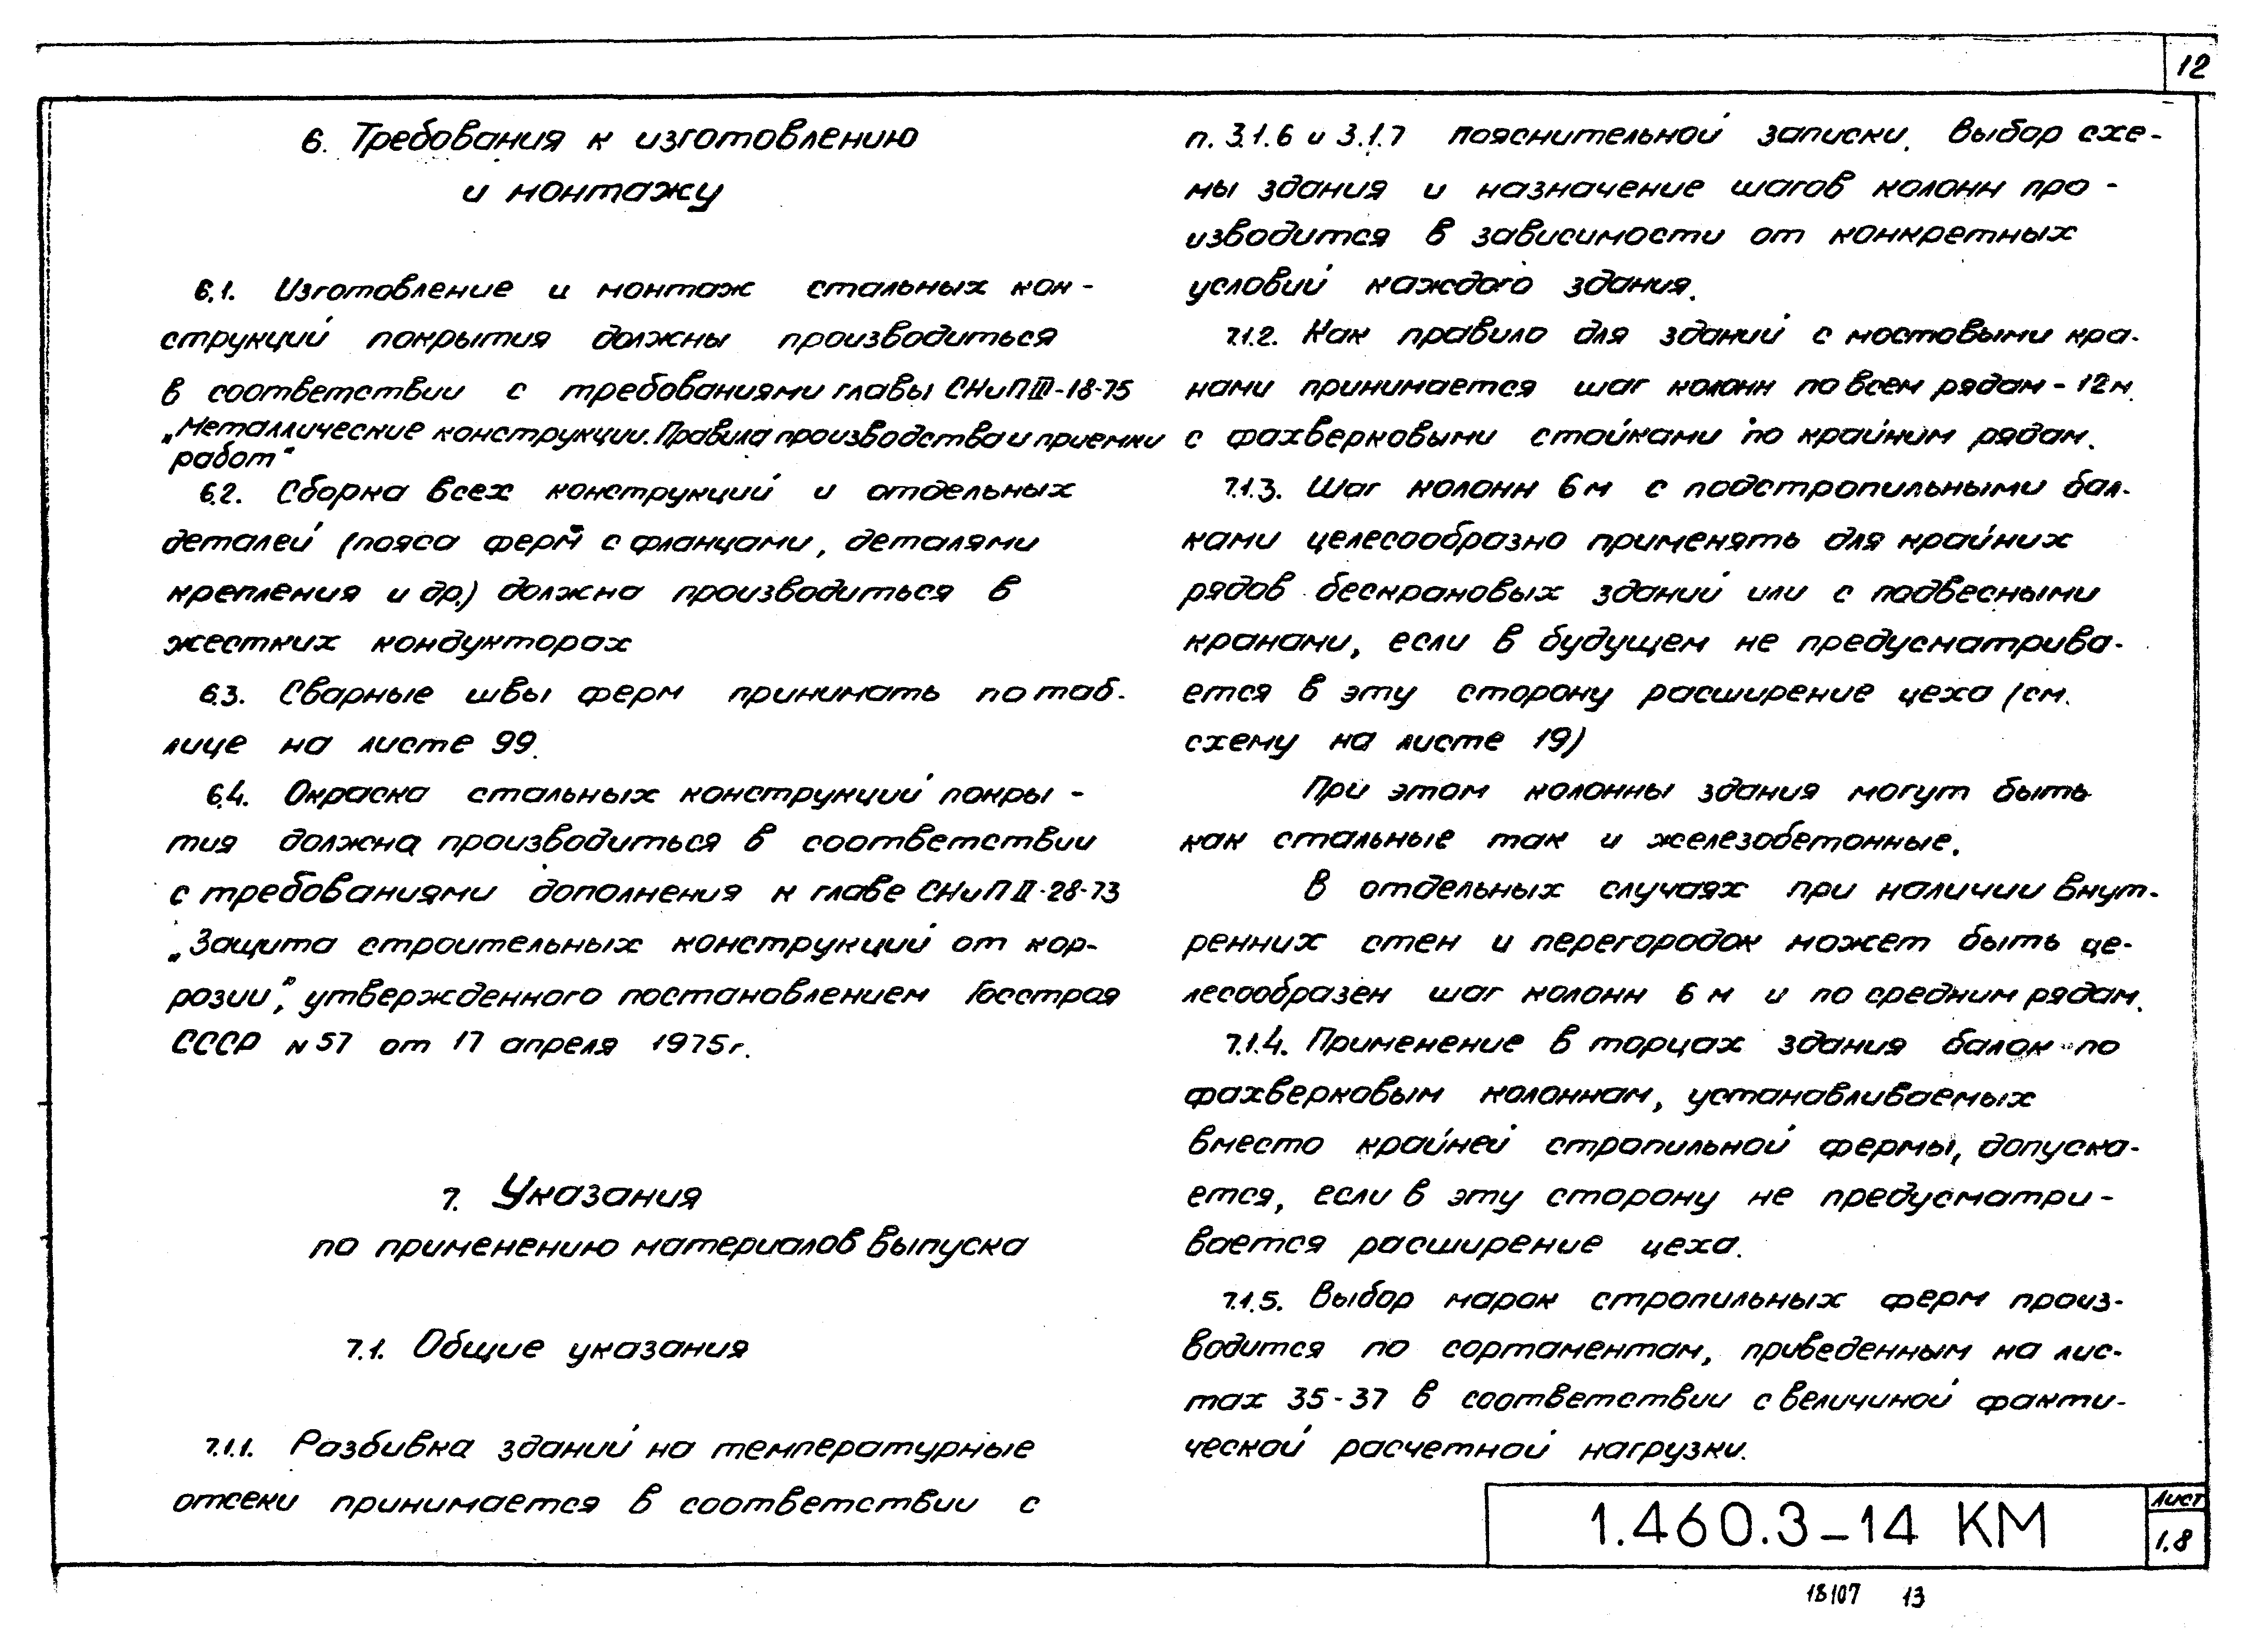 12
6. Требования к изготовлению
и монтажу
6.1. Изготовление и монтаж стальных кон-
струкций покрытия должны производиться
в соответствии с требованиями главы СНиП III-18-75
„Металлические конструкции. Правила производства и приемки
работ"
6.2. Сборка всех конструкций и отдельных
деталей (пояса ферм с фланцами, деталями
крепления и др.) должна производиться в
жестких кондукторах
6.3. Сварные швы ферм принимать по таб-
лице на листе 99.
6.4. Окраска стальных конструкций покры-
тия должна производиться в соответствии
с требованиями дополнения к главе СНиП II-28-73
„Защита строительных конструкций от кор-
розии", утвержденного постановлением Госстроя
СССР N 57 от 17 апреля 1975г.
7. Указания
по применению материалов выпуска
7.1. Общие указания
7.1.1. Разбивка зданий на температурные
отсеки принимается в соответствии с
п. 3.1.6 и 3.1.7 пояснительной записки. Выбор схе-
мы здания и назначение шагов колонн про-
изводится в зависимости от конкретных
условий каждого здания.
7.1.2. Как правило для зданий с мостовыми кра-
нами принимается шаг колонн по всем рядам - 12м.
с фахверковыми стойками по крайним рядам.
7.1.3. Шаг колонн 6м с подстропильными бал-
ками целесообразно применять для крайних
рядов бескрановых зданий или с подвесными
кранами, если в будущем не предусматрива-
ется в эту сторону расширение цеха (см.
схему на листе 19)
При этом колонны здания могут быть
как стальные так и железобетонные.
В отдельных случаях при наличии внут-
ренних стен и перегородок может быть це-
лесообразен шаг колонн 6 м и по средним рядам.
7.1.4. Применение в торцах здания балок по
фахверковым колоннам, устанавливаемых
вместо крайней стропильной фермы, допуска-
ется, если в эту сторону не предусматри-
вается расширение цеха.
7.1.5. Выбор марок стропильных ферм произ-
водится по сортаментам, приведенным на лис-
тах 35-37 в соответствии с величиной факти-
ческой расчетной нагрузки.
1.460.3-14 КМ
Лист
1.8
18107 13